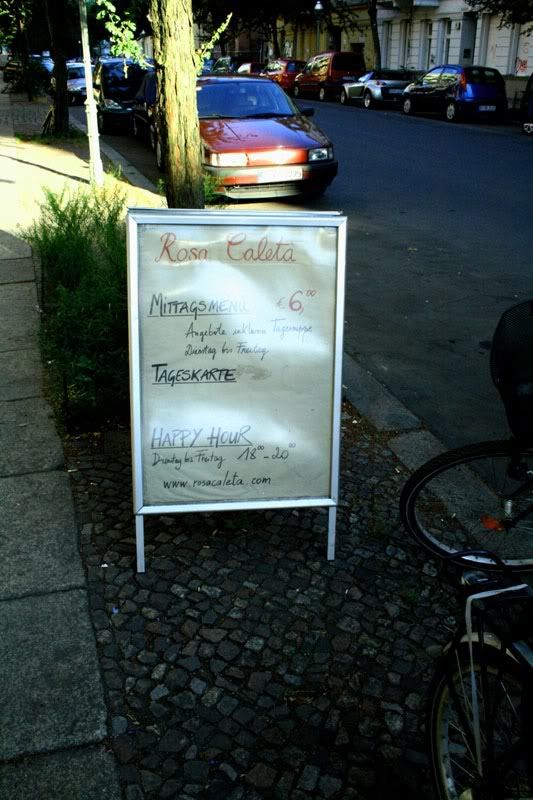 Rosa Caleta
MITTAGSMENÜ €6,00
Angebote inklusive Tagessuppe
Dienstag bis Freitag
TAGESKARTE
HAPPY HOUR
Dienstag bis Freitag 18 00 - 20 00
www.rosacaleta.com